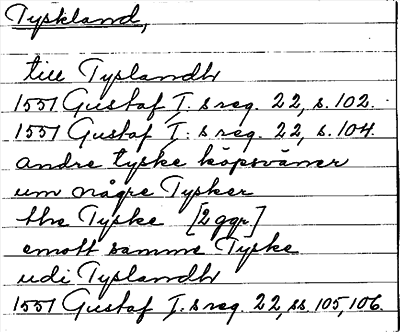 Tyskland,
till Tyslandh
1551 Gustaf I:s reg. 22, s. 102.
1551 Gustaf I:s reg. 22, s. 104.
andre tyske köpsväner
um någre Tysker
the Tyske [2 ggr]
emott samme Tyske
udi Tyslandh
1551 Gustaf I:s reg. 22, ss. 105, 106.